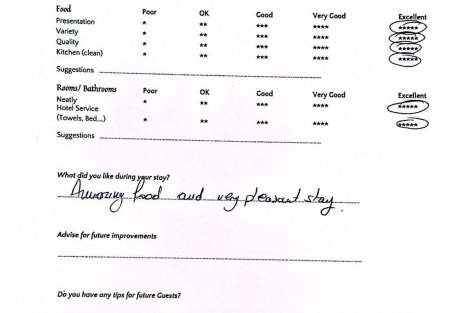 Food Poor OK Good Very Good Excellent
Presentation * ** *** **** *****
Variety * ** *** **** *****
Quality * ** *** **** *****
Kitchen (clean) * ** *** **** *****
Suggestions
Rooms/ Bathrooms Poor OK Good Very Good Excellent
Neatly * ** *** **** *****
Hotel Service
(Towels, Bed...) * ** *** **** *****
Suggestions
What did you like during your stay?
Amazing food and very pleasant stay.
Advise for future improvements
Do you have any tips for future Guests?